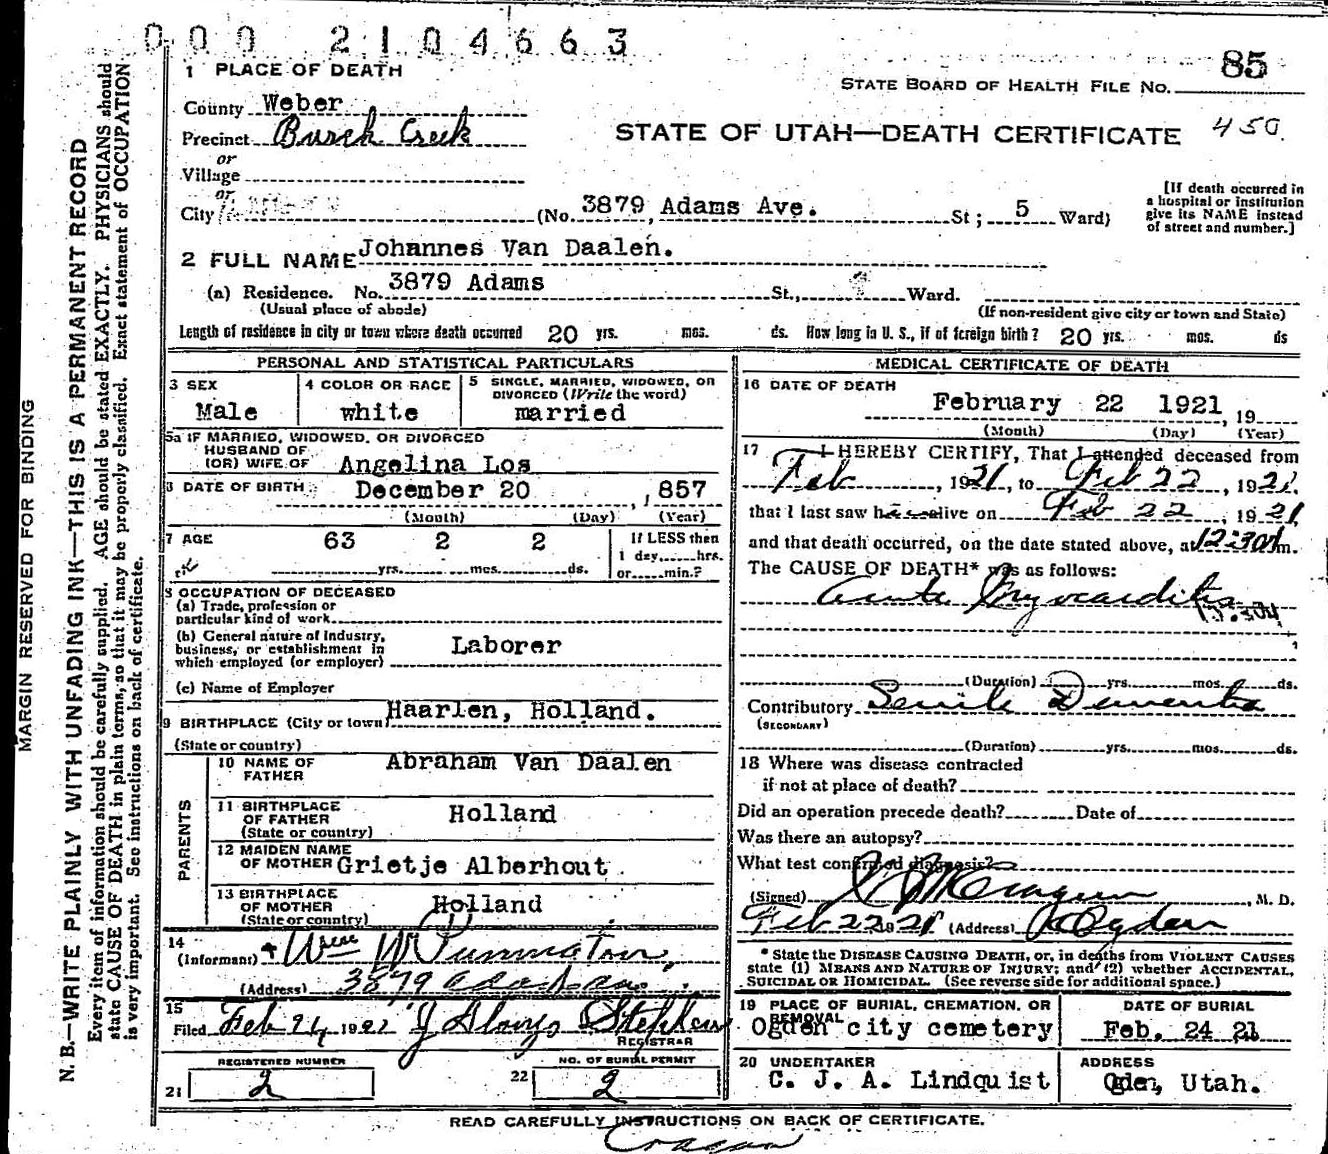 000 2104663
1 PLACE OF DEATH
STATE BOARD OF HEALTH FILE NO. 85
County Weber
Precinct Burch Creek
STATE OF UTAH—DEATH CERTIFICATE 450
or
Village
or
City (No. 3879 Adams Ave. St; 5 Ward)
[If death occurred in a hospital or institution give its NAME instead of street and number.]
2 FULL NAME Johannes Van Daalen.
(a) Residence. No. 3879 Adams St., Ward.
(Usual place of abode) (If non-resident give city or town and State)
Length of residence in city or town where death occurred 20 yrs. mos. ds. How long in U. S., if of foreign birth? 20 yrs. mos. ds
PERSONAL AND STATISTICAL PARTICULARS
3 SEX
Male
4 COLOR OR RACE
white
5 SINGLE, MARRIED, WIDOWED, OR DIVORCED (Write the word)
married
5a IF MARRIED, WIDOWED, OR DIVORCED
HUSBAND OF
(OR) WIFE OF Angelina Los
6 DATE OF BIRTH December 20 , 1857
(Month) (Day) (Year)
7 AGE 63 2 2
yrs. mos. ds.
If LESS then
1 day,.....hrs.
or.....min.?
8 OCCUPATION OF DECEASED
(a) Trade, profession or
particular kind of work
(b) General nature of Industry,
business, or establishment in Laborer
which employed (or employer)
(c) Name of Employer
9 BIRTHPLACE (City or town Haarlen, Holland.
(State or country)
PARENTS
10 NAME OF FATHER Abraham Van Daalen
11 BIRTHPLACE OF FATHER Holland
(State or country)
12 MAIDEN NAME OF MOTHER Grietje Alberhout
13 BIRTHPLACE OF MOTHER Holland
(State or country)
14
(Informant)
(Address) 3879
15
Filed Feb 24, 192
REGISTRAR
REGISTERED NUMBER
21 2
NO. OF BURIAL PERMIT
22 2
MEDICAL CERTIFICATE OF DEATH
16 DATE OF DEATH
February 22 1921, 19
(Month) (Day) (Year)
17 I HEREBY CERTIFY, That I attended deceased from
Feb , 1921, to Feb 22, 1921,
that I last saw h alive on Feb 22, 1921
and that death occurred, on the date stated above, at 12:30 m.
The CAUSE OF DEATH* was as follows:
Acute Myocarditis
(Duration) yrs. mos. ds.
Contributory Senile Dementia
(SECONDARY)
(Duration) yrs. mos. ds.
18 Where was disease contracted
if not at place of death?
Did an operation precede death? Date of
Was there an autopsy?
What test confirmed diagnosis?
(Signed) , M. D.
Feb 22 1921 (Address) Ogden
* State the DISEASE CAUSING DEATH, or, in deaths from VIOLENT CAUSES
state (1) MEANS AND NATURE OF INJURY; and (2) whether ACCIDENTAL,
SUICIDAL OR HOMICIDAL. (See reverse side for additional space.)
19 PLACE OF BURIAL, CREMATION, OR REMOVAL
Ogden city cemetery
DATE OF BURIAL
Feb. 24 21
20 UNDERTAKER
C. J. A. Lindquist
ADDRESS
Ogden, Utah.
READ CAREFULLY INSTRUCTIONS ON BACK OF CERTIFICATE.
MARGIN RESERVED FOR BINDING
N. B.—WRITE PLAINLY WITH UNFADING INK—THIS IS A PERMANENT RECORD
Every item of information should be carefully supplied. AGE should be stated EXACTLY. PHYSICIANS should
state CAUSE OF DEATH in plain terms, so that it may be properly classified. Exact statement of OCCUPATION
is very important. See instructions on back of certificate.